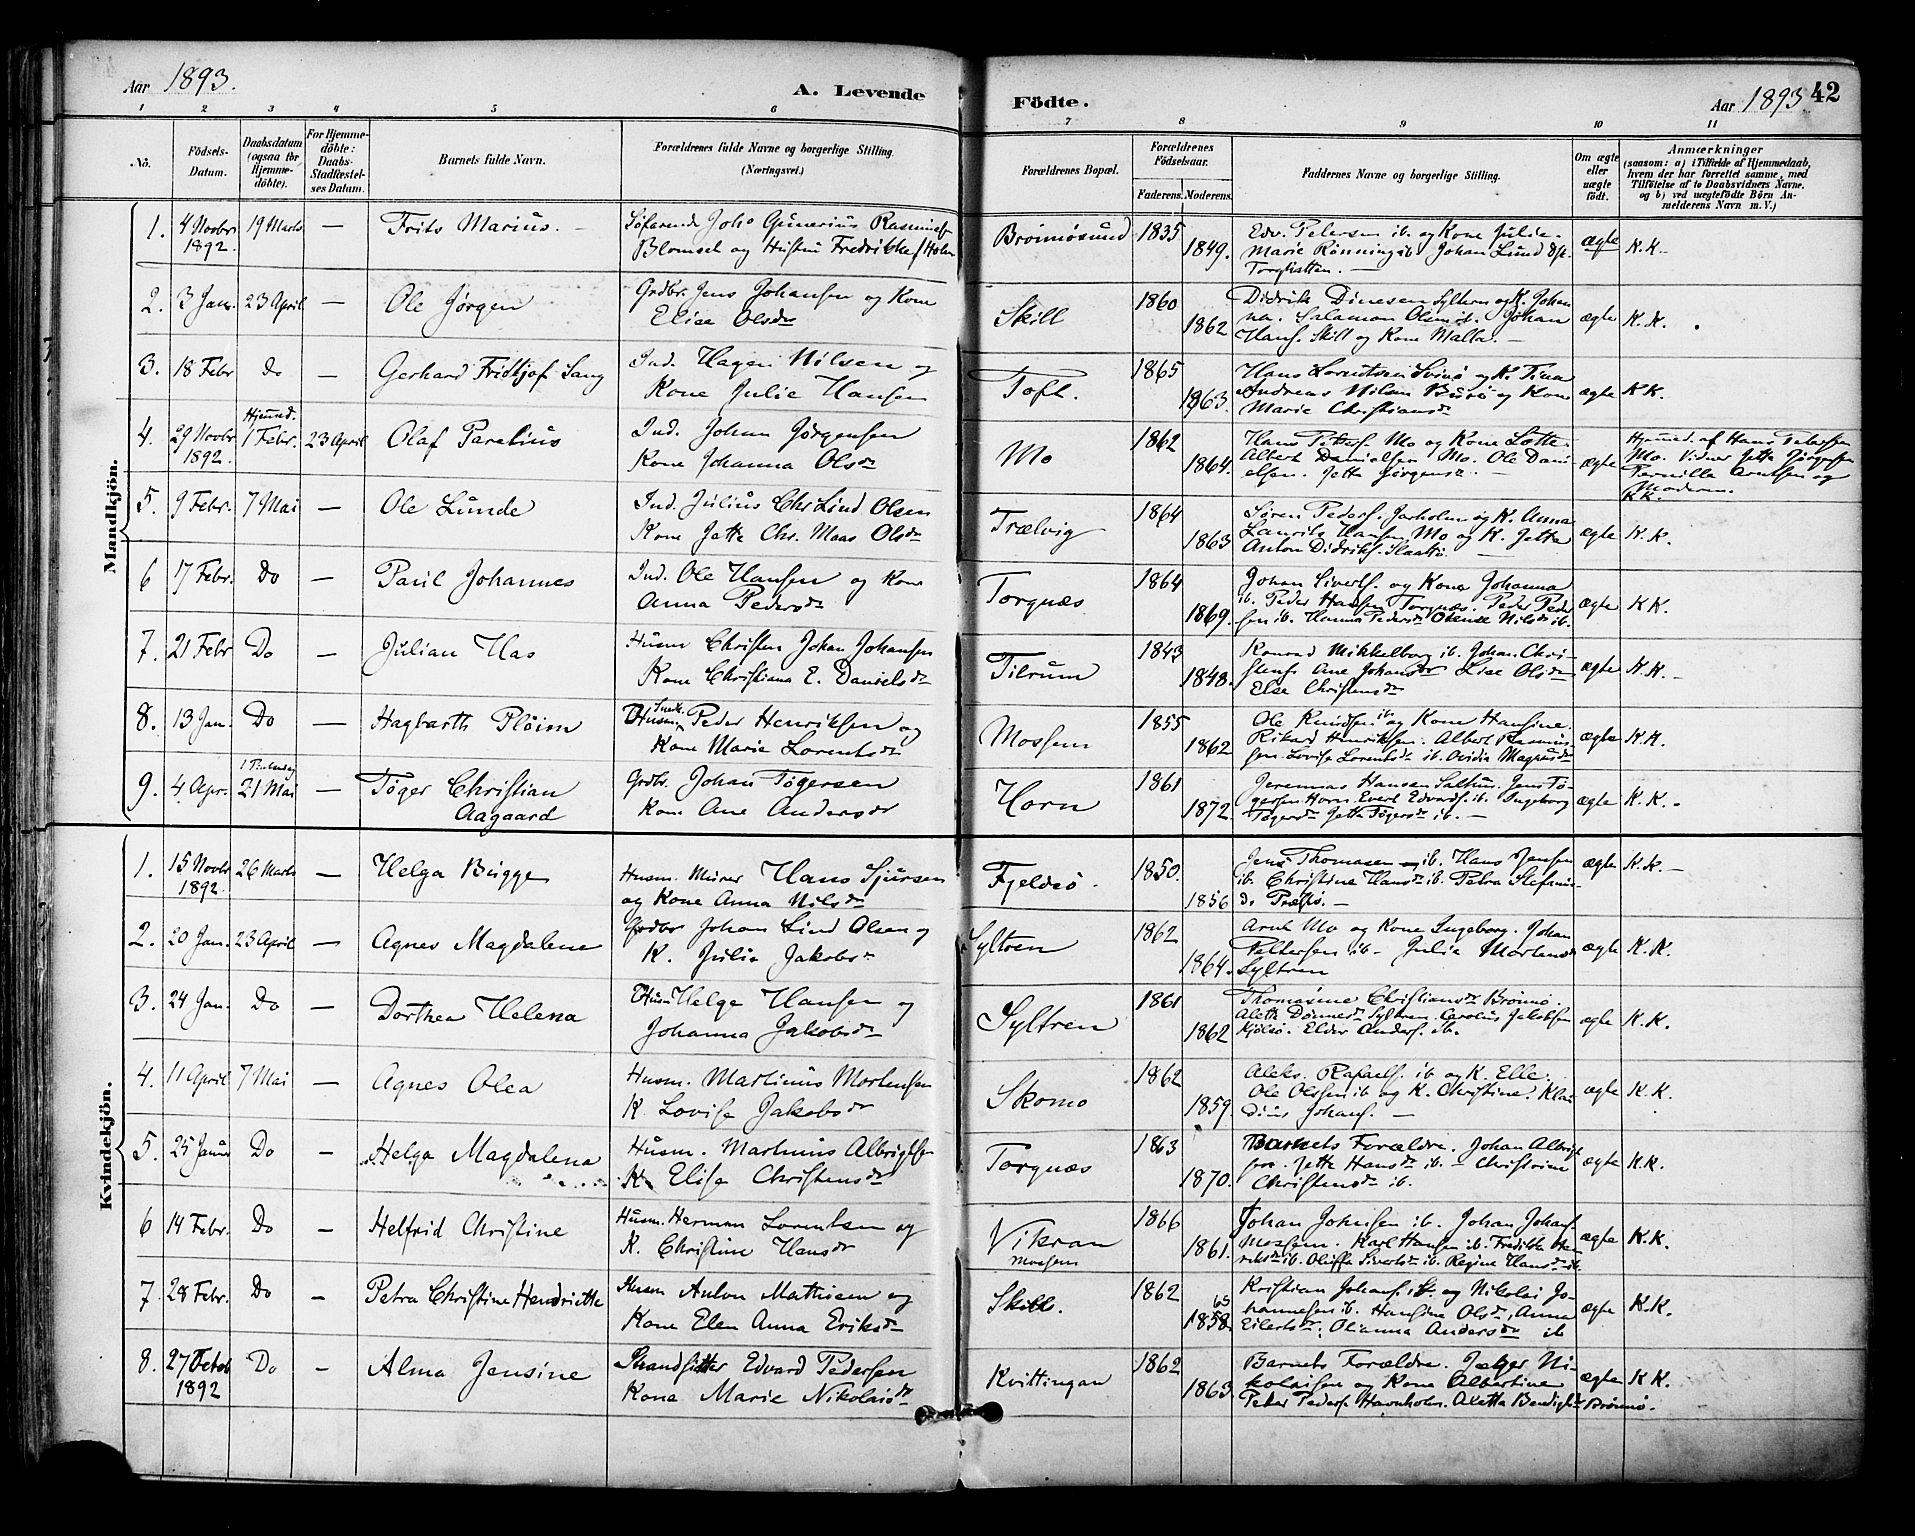 Aar 1893.
A. Levende
Födte.
Aar 1893 42
1 2 3 4 5 6 7 8 9 10 11
No.
Födsels-Datum.
Daabsdatum (ogsaa for Hjemme-döbte).
For Hjemme-döbte: Daabs-Stadfæstel-ses Datum.
Barnets fulde Navn.
Forældrenes fulde Navne og borgerlige Stilling. (Næringsvei.)
Forældrenes Bopæl.
Forældrenes Födselsaar.
Faderens. Moderens.
Faddernes Navne og borgerlige Stilling.
Om ægte eller uægte födt.
Anmærkninger
(saasom: a) i Tilfælde af Hjemmedaab, hvem der har forrettet samme, med Tilföielse af to Daabsvidners Navne, og b) ved uægtefödte Börn An-melderens Navn m.V.)
Mandkjön.
1. 4 Novbr 1892. 19 Marts — Frits Marius. Søfarende Joh. Gunerius Rasmuss. Blomsel og Hustru Fredrikke Brönnösund 1835 1849. Edv. Petersen ib. og Kone Julie. Marie Rönning ib. Johan Lund Torghatten. — ægte K.K.
2. 3 Jan. 23 April — Ole Jørgen Grdbr. Jens Johansen og Kone Elise Olsdr Skill 1860 1862 Didrik Dinesen Syltern og K. Johanna. Salamon Olsen ib. Johan Hans. Skill og Kone Malla. — ægte K.K.
3. 18 Febr Do — Gerhard Fridtjof Sang Ind. Hagen Nilsen og Kone Julie Hansen Toft. 1865 1863. Hans Lorentsen og K. Tina Andreas Nilsen og Kone Marie Christiansdr ægte KK.
4. 29 Novbr 1892. Hjemmed. 1 Febr. 23 April Olaf Paralius Ind. Johan Jörgensen Kone Johanna Olsdr Mo 1862 1864. Hans Peters. Mo og Kone Lotte. Albert Danielsen Mo. Ole Danielsen. Jetta Jörgens. ægte Hjemmed. af Hans Petersen Mo. Vidner Jetta Jörgensen Pernille Arntsen og Moderen. KK.
5. 9 Febr. 7 Mai — Ole Lunde Ind. Julius Chr Lind Olsen Kone Jette Chr. Maas Olsdr Trælvig 1864 1863 Sören Peders. og K. Anna Laurits Hansen Mo og K. Jetta Anton Didriks. ægte K.K.
6 17 Febr. Do — Paul Johannes Ind. Ole Hansen og Kone Anna Pedersdr Torgnæs 1864 1869. Johan Siverts. og Kone Johanna ib. Peder Hansen Torgnæs. Peder Pedersen ib. Hanna Pedersdr Nilsdr ib. ægte KK.
7. 21 Febr Do — Julian Has Husm Christen Johan Johansen Kone Christiana E. Danielsdr Tilrum 1843 1848. Konrad Mikkelborg ib. Johan Christens. Ane Johansdr Lise Olsdr Else Christensdr ægte K.K.
8. 13 Jan. Do — Hagbarth Pløim Husm. Peder Henriksen og Kone Marie Lorentsdr Mossem 1855 1862 Ole Knudsen ib. og Kone Hansine. Rikard Henriksen. Albert Rasmussen. Lovise Lorentsdr ib. Ovidia Magnusdr ægte K.K.
9. 4 Apr. 21 Mai — Töger Christian Aagaard Grdbr. Johan Tøgersen Kone Ane Andersdr Horn 1861 1872. Jeremias Hansen Salhus. Jens Tögersen Horn. Evert Edvards. ib. Ingeborg Tögersdr Jetta Tögersdr ib. — ægte K.K.
Kvindekjön.
1. 15 Novbr 1892. 26 Marts — Helga Bugge Husm. Murer Hans Sjursen og Kone Anna Nilsdr Fjeldsö. 1850. 1856. Jens Thomasen ib. Hans Jensen ib. Christine Hansdr ib. Petra ægte K.K.
2. 20 Jan. 23 April — Agnes Magdalene Grdbr Johan Lind Olsen og K. Julia Jakobsdr Syltren 1862 1864. Arnt Mo og Kone Ingeborg. Johan Pettersen ib. Julia Mortensdr Syltren ægte K.K.
3. 24 Jan. Do — Dorthea Helena Husm Helge Hansen og Johanna Jakobsdr Syltren 1861 1862 Thomasine Christiansdr Brönnö. Alette Syltren. Carolus Jakobsen Kjölsö. Elder Anders. ib. ægte K.K.
4. 11 April 7 Mai — Agnes Olea Husm. Martinus Mortensen K. Lovise Jakobsdr Skomo 1862 1859. Aleks. Rafaels. ib og K. Elle. Ole Olssen ib og K. Christine. Klaudius Johans. — ægte K.K.
5. 25 Januar Do — Helga Magdalena Husm. Martinus Albrigtsen K. Elise Christensdr Torgnæs 1863 1870. Barnets Forældre. Johan Albrigtsen. Jette Hansdr ib. Christiane Christensdr ib. ægte K.K.
6 14 Febr. Do — Helfrid Christine Husm. Herman Lorentsen og K. Christine Hansdr Vikran Mossem 1866 1861. Johan Johnsen ib. Johan Johans. Mossem. Karl Hansen ib. Fredikke Henriksdr ib. Oliffa Sivertsdr ib. Regine Hansdr ib. ægte K.K.
7. 28 Febr. Do — Petra Christine Hendriette Husm Anton Mathisen og Kone Elen Anna Eriksdr Skill. 1862 65 1858. Kristian Johans. ib. og Nikolai Johannesen ib. Hansine Olsdr, Anna Eilertsdr. Olianna Andersdr ib ægte K.K.
8. 27 1892 Do — Alma Jensine Strandsitter Edvard Pedersen Kone Marie Nikolaisdr Kvittingan 1862 1863. Barnets Forældre. Jæger Nikolaisen og Kone Albertine Peter Peders. Havnholm. Aletta Brönnö. ægte KK.